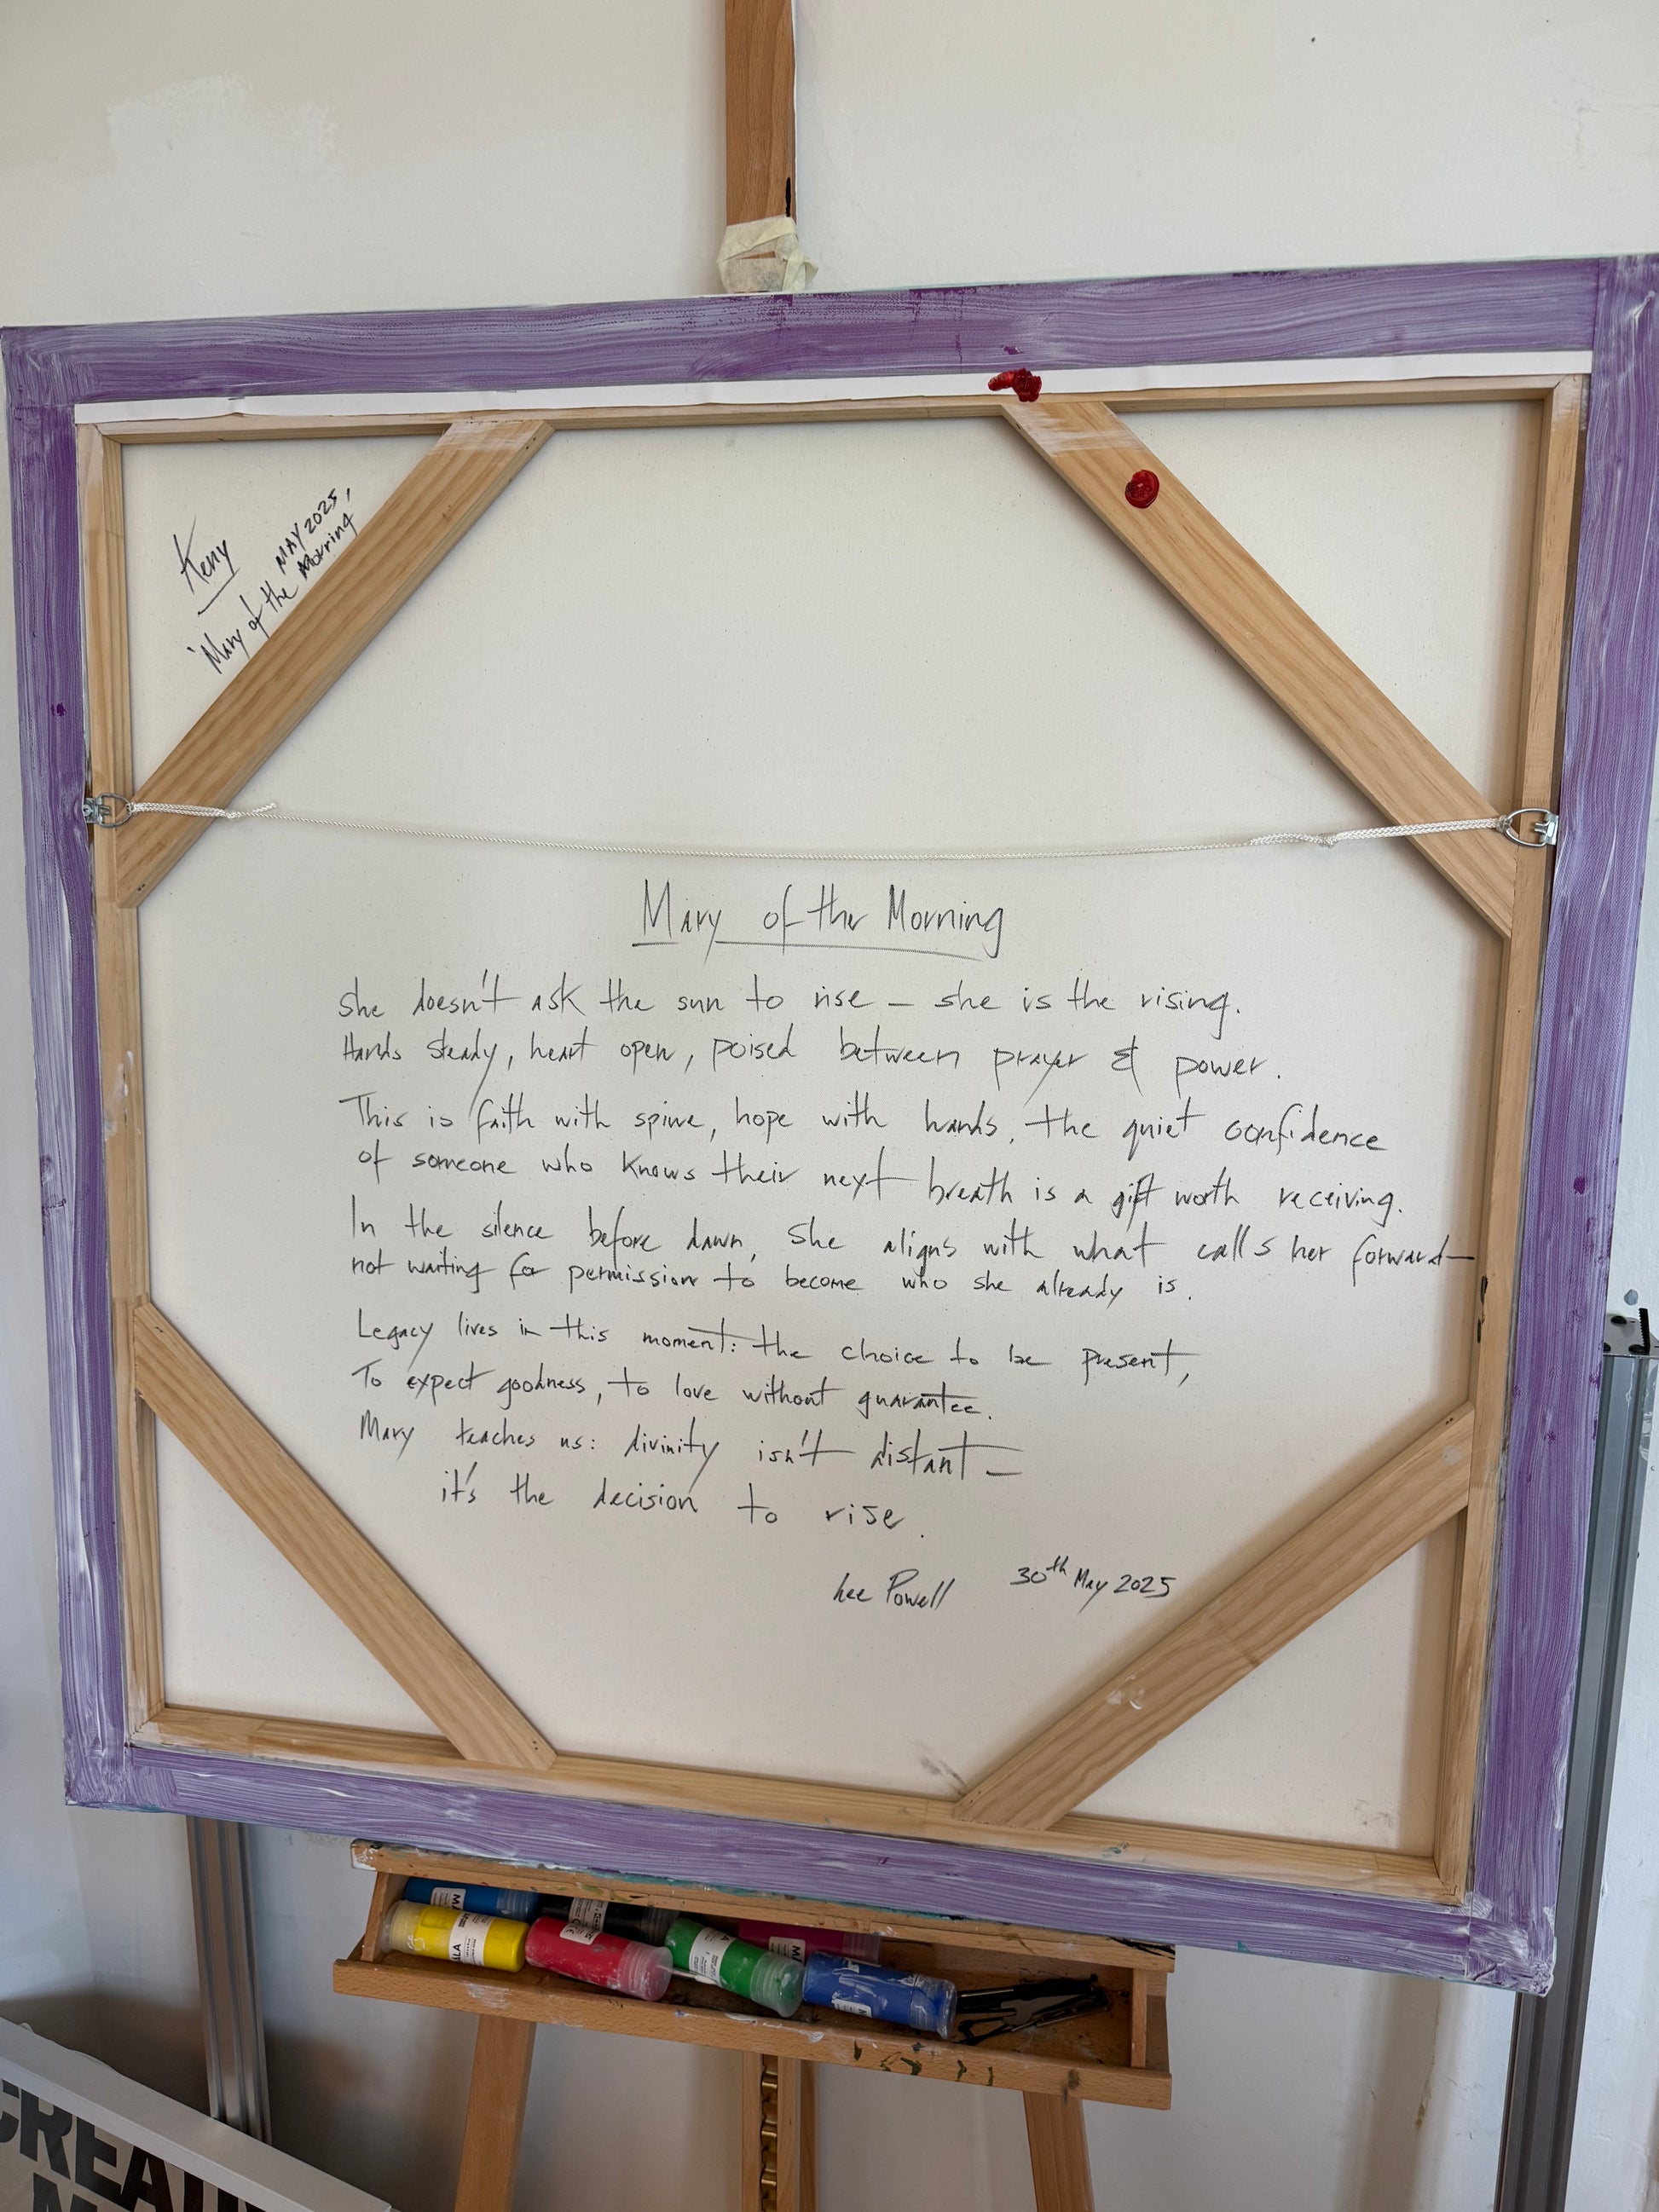 Keny
MAY 2025,
'Mary of the Morning
Mary of the Morning
She doesn't ask the sun to rise – she is the rising.
Hands steady, heart open, poised between prayer & power.
This is faith with spine, hope with hands, the quiet confidence
of someone who knows their next breath is a gift worth receiving.
In the silence before dawn, She aligns with what calls her forward–
not waiting for permission to become who she already is.
Legacy lives in this moment: the choice to be present,
To expect goodness, to love without guarantee.
Mary teaches us: divinity isn't distant –
it's the decision to rise.
Lee Powell 30th May 2025